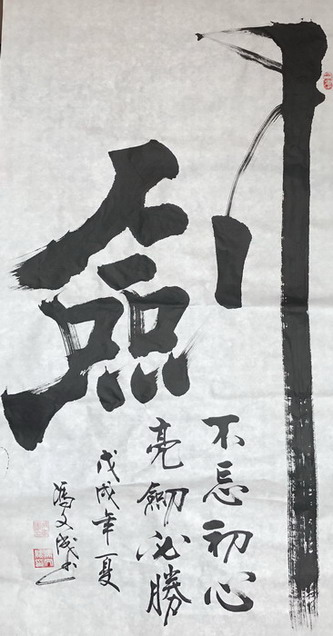 劍
不忘初心
亮劍必勝
戊戌年夏
馮文成书